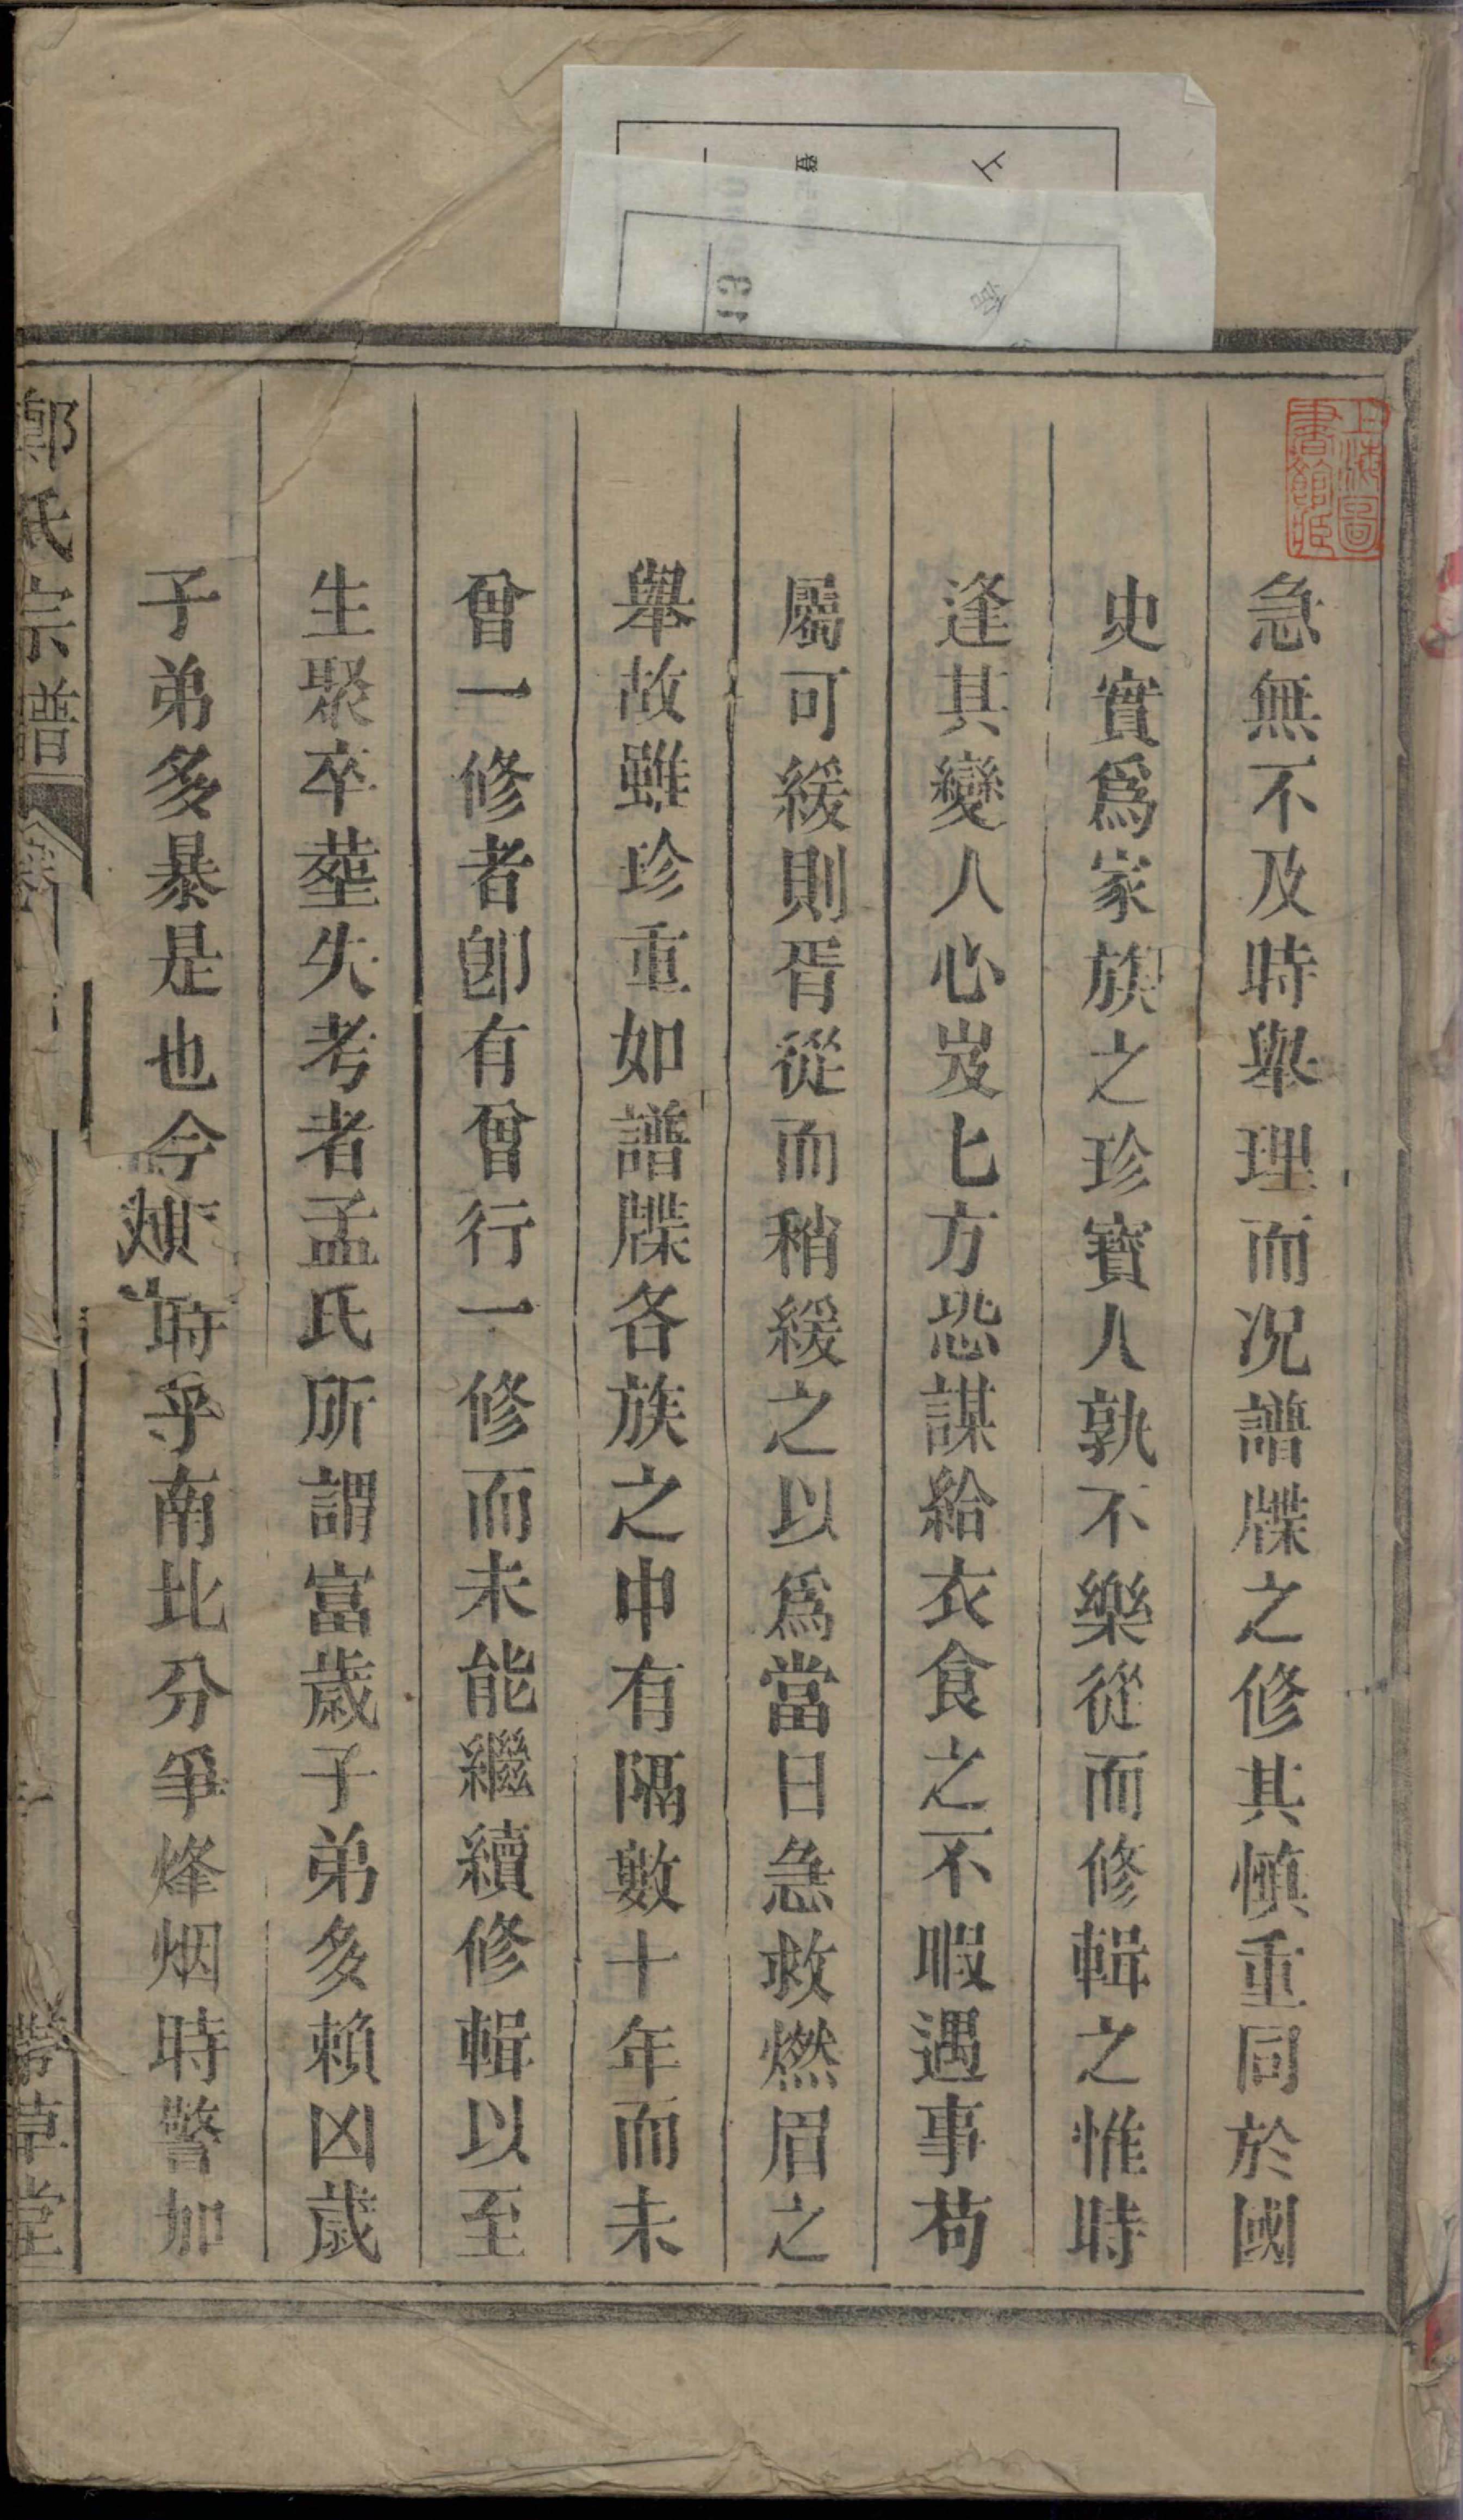 急無不及時舉理而况譜牒之修其慎重同於國
史實爲家族之珍寶人孰不樂從而修輯之惟時
逢其變人心岌七方恐謀給衣食之不暇遇事苟
屬可緩則胥從而稍緩之以爲當日急救燃眉之
舉故雖珍重如譜牒各族之中有隔數十年而未
曾一修者卽有曾行一修而未能繼續修輯以至
生聚卒塟失考者孟氏所謂富歲子弟多賴凶歲
子弟多暴是也今時乎南北分爭烽烟時警加
氏宗譜
草堂
上海圖書館藏
上
13